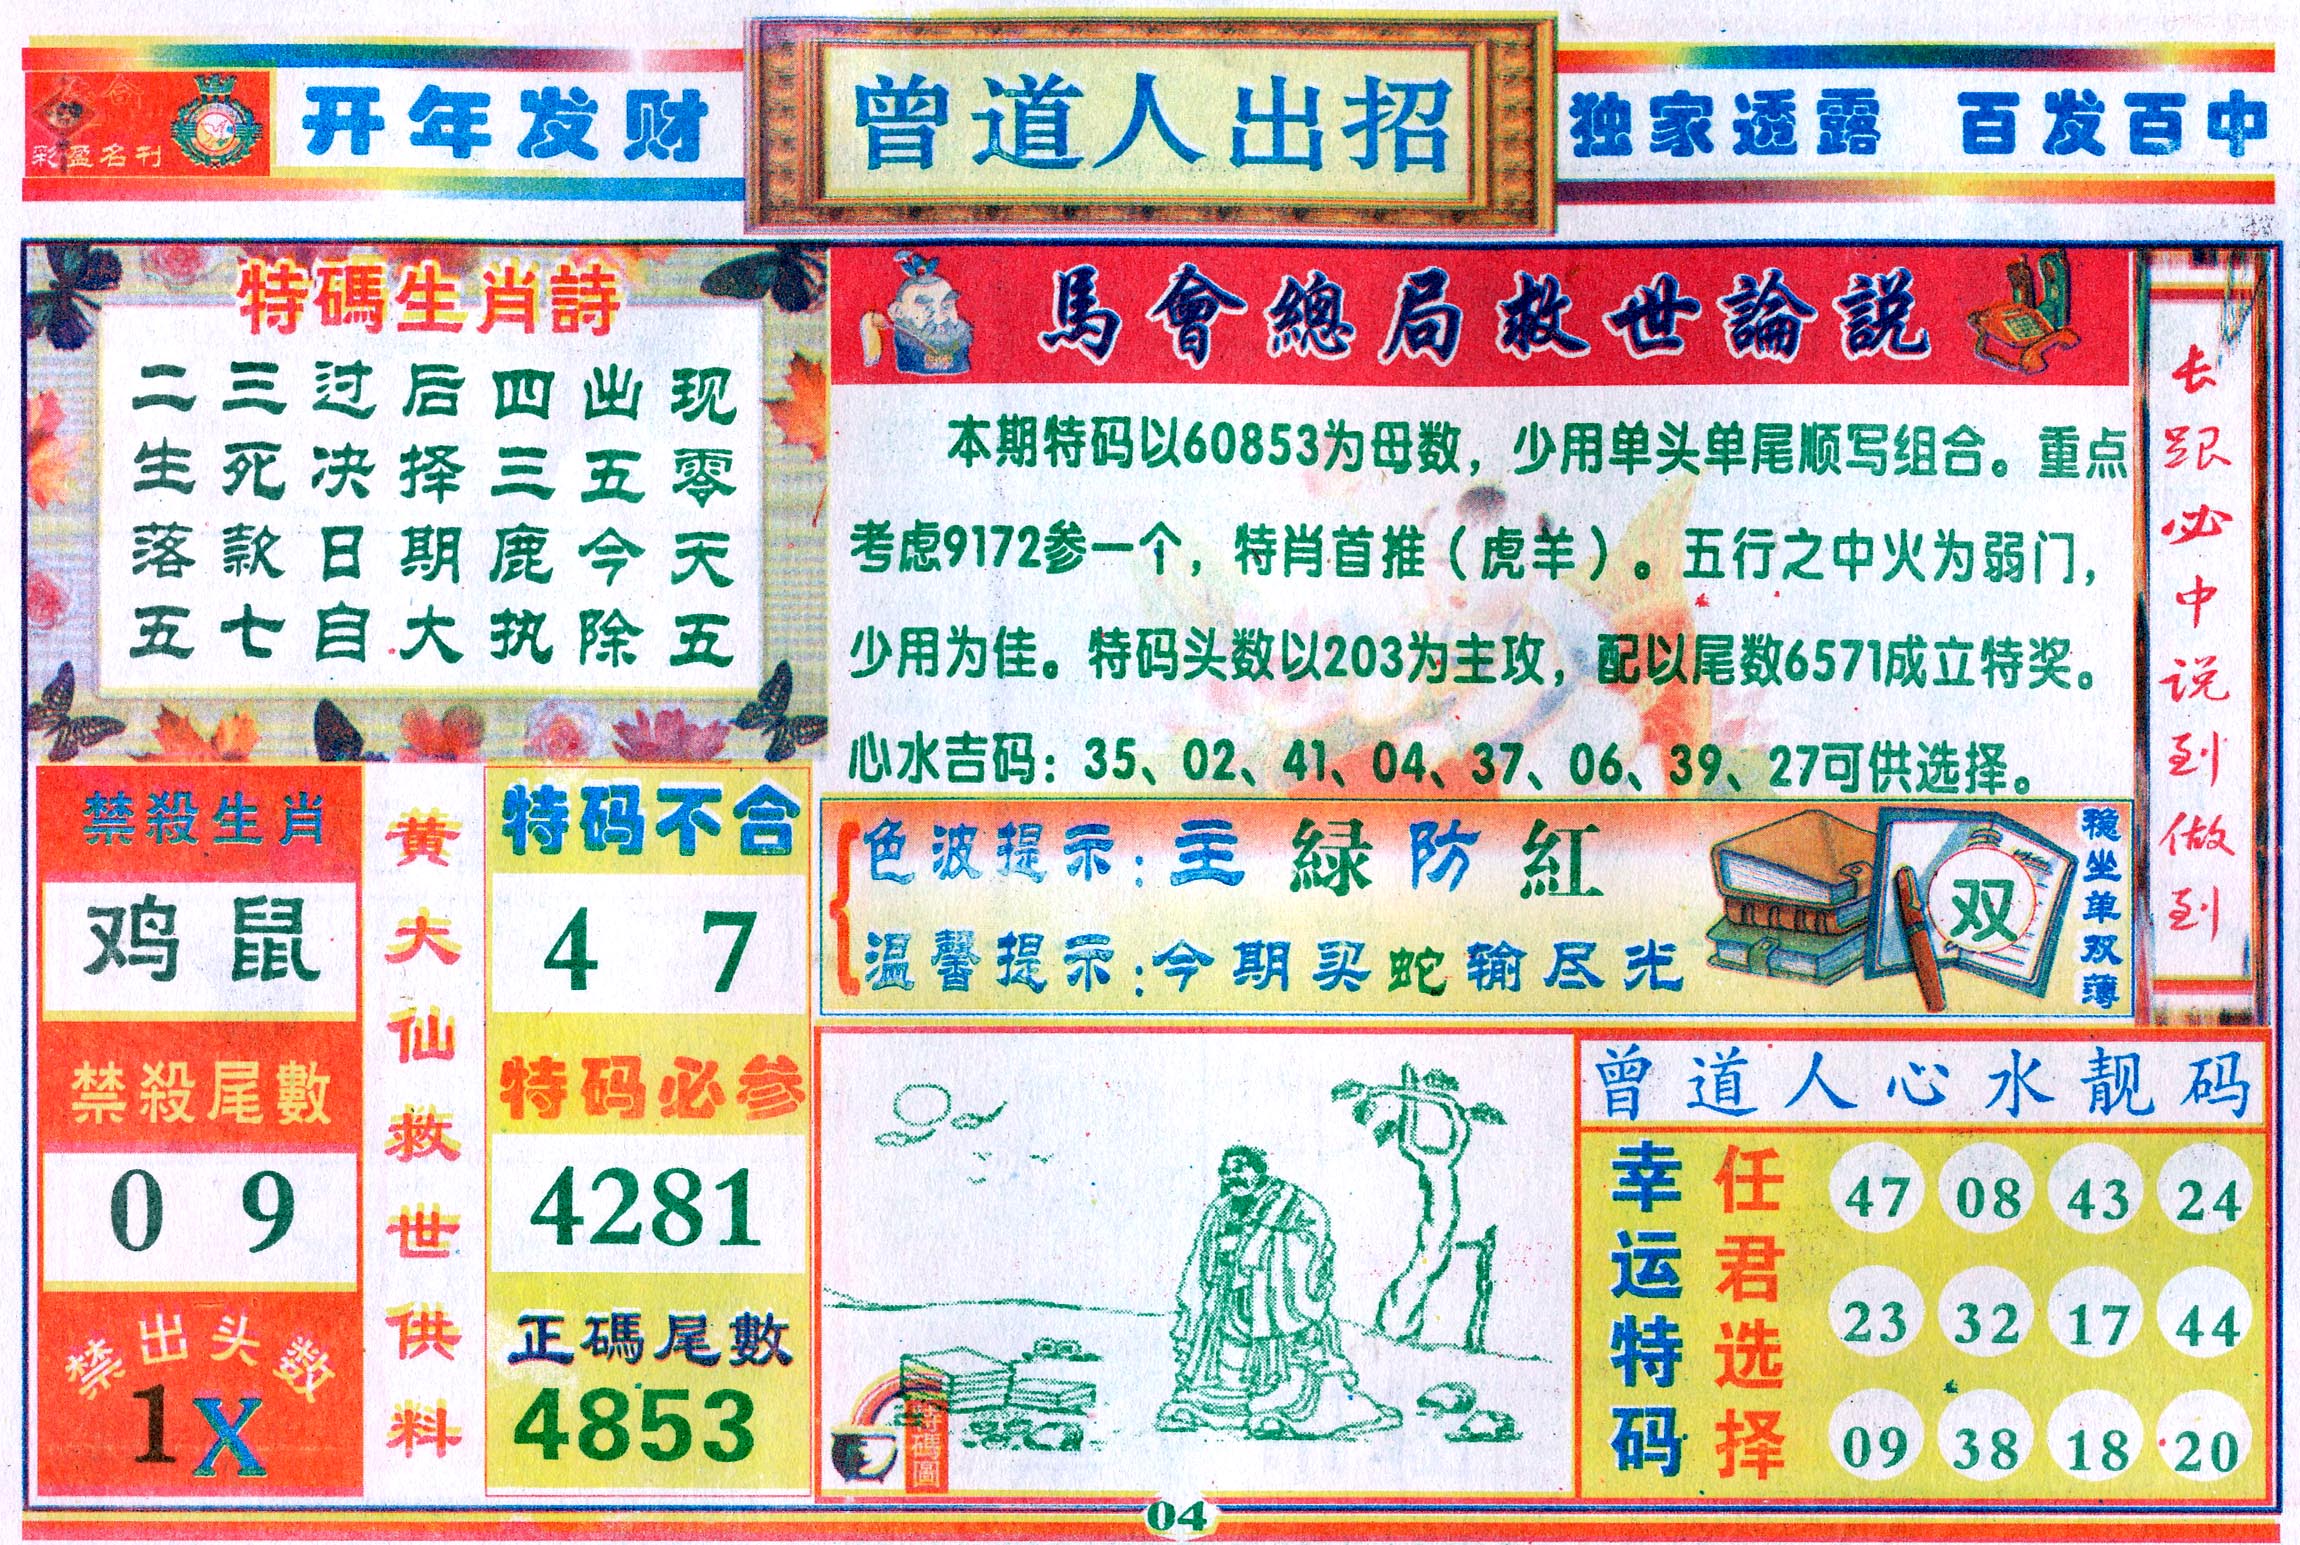 彩盈名刊
开年发财
曾道人出招
独家透露 百发百中
特碼生肖詩
二三过后四出现
生死决择三五零
落款日期鹿今天
五七自大执除五
馬會總局救世論説
本期特码以60853为母数，少用单头单尾顺写组合。重点
考虑9172参一个，特肖首推（虎羊）。五行之中火为弱门，
少用为佳。特码头数以203为主攻，配以尾数6571成立特奖。
心水吉码：35、02、41、04、37、06、39、27可供选择。
长跟必中说到做到
色波提示：主緑防紅
温馨提示：今期买蛇输尽光
双
稳坐单双薄
禁殺生肖
鸡 鼠
禁殺尾數
0 9
禁出头数
1X
黄大仙救世供料
特码不合
4 7
特码必参
4281
正碼尾數
4853
特碼圖
曾道人心水靓码
幸运特码
任君选择
47 08 43 24
23 32 17 44
09 38 18 20
04